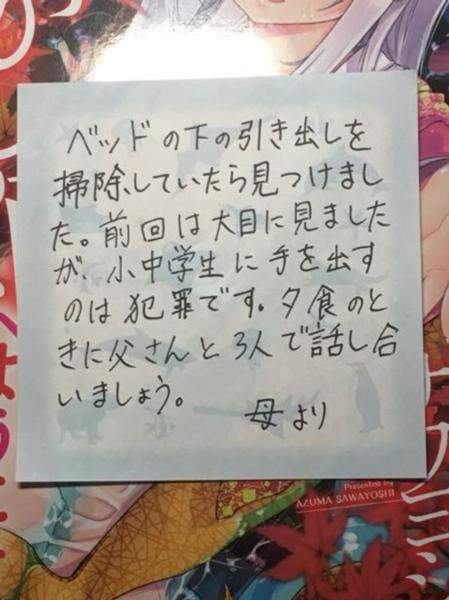 ベッドの下の引き出しを
掃除していたら見つけまし
た。前回は大目に見ました
が、小中学生に手を出す
のは犯罪です。夕食のと
きに父さんと3人で話し合
いましょう。
母より
Presented by
AZUMA SAWAYOSHI